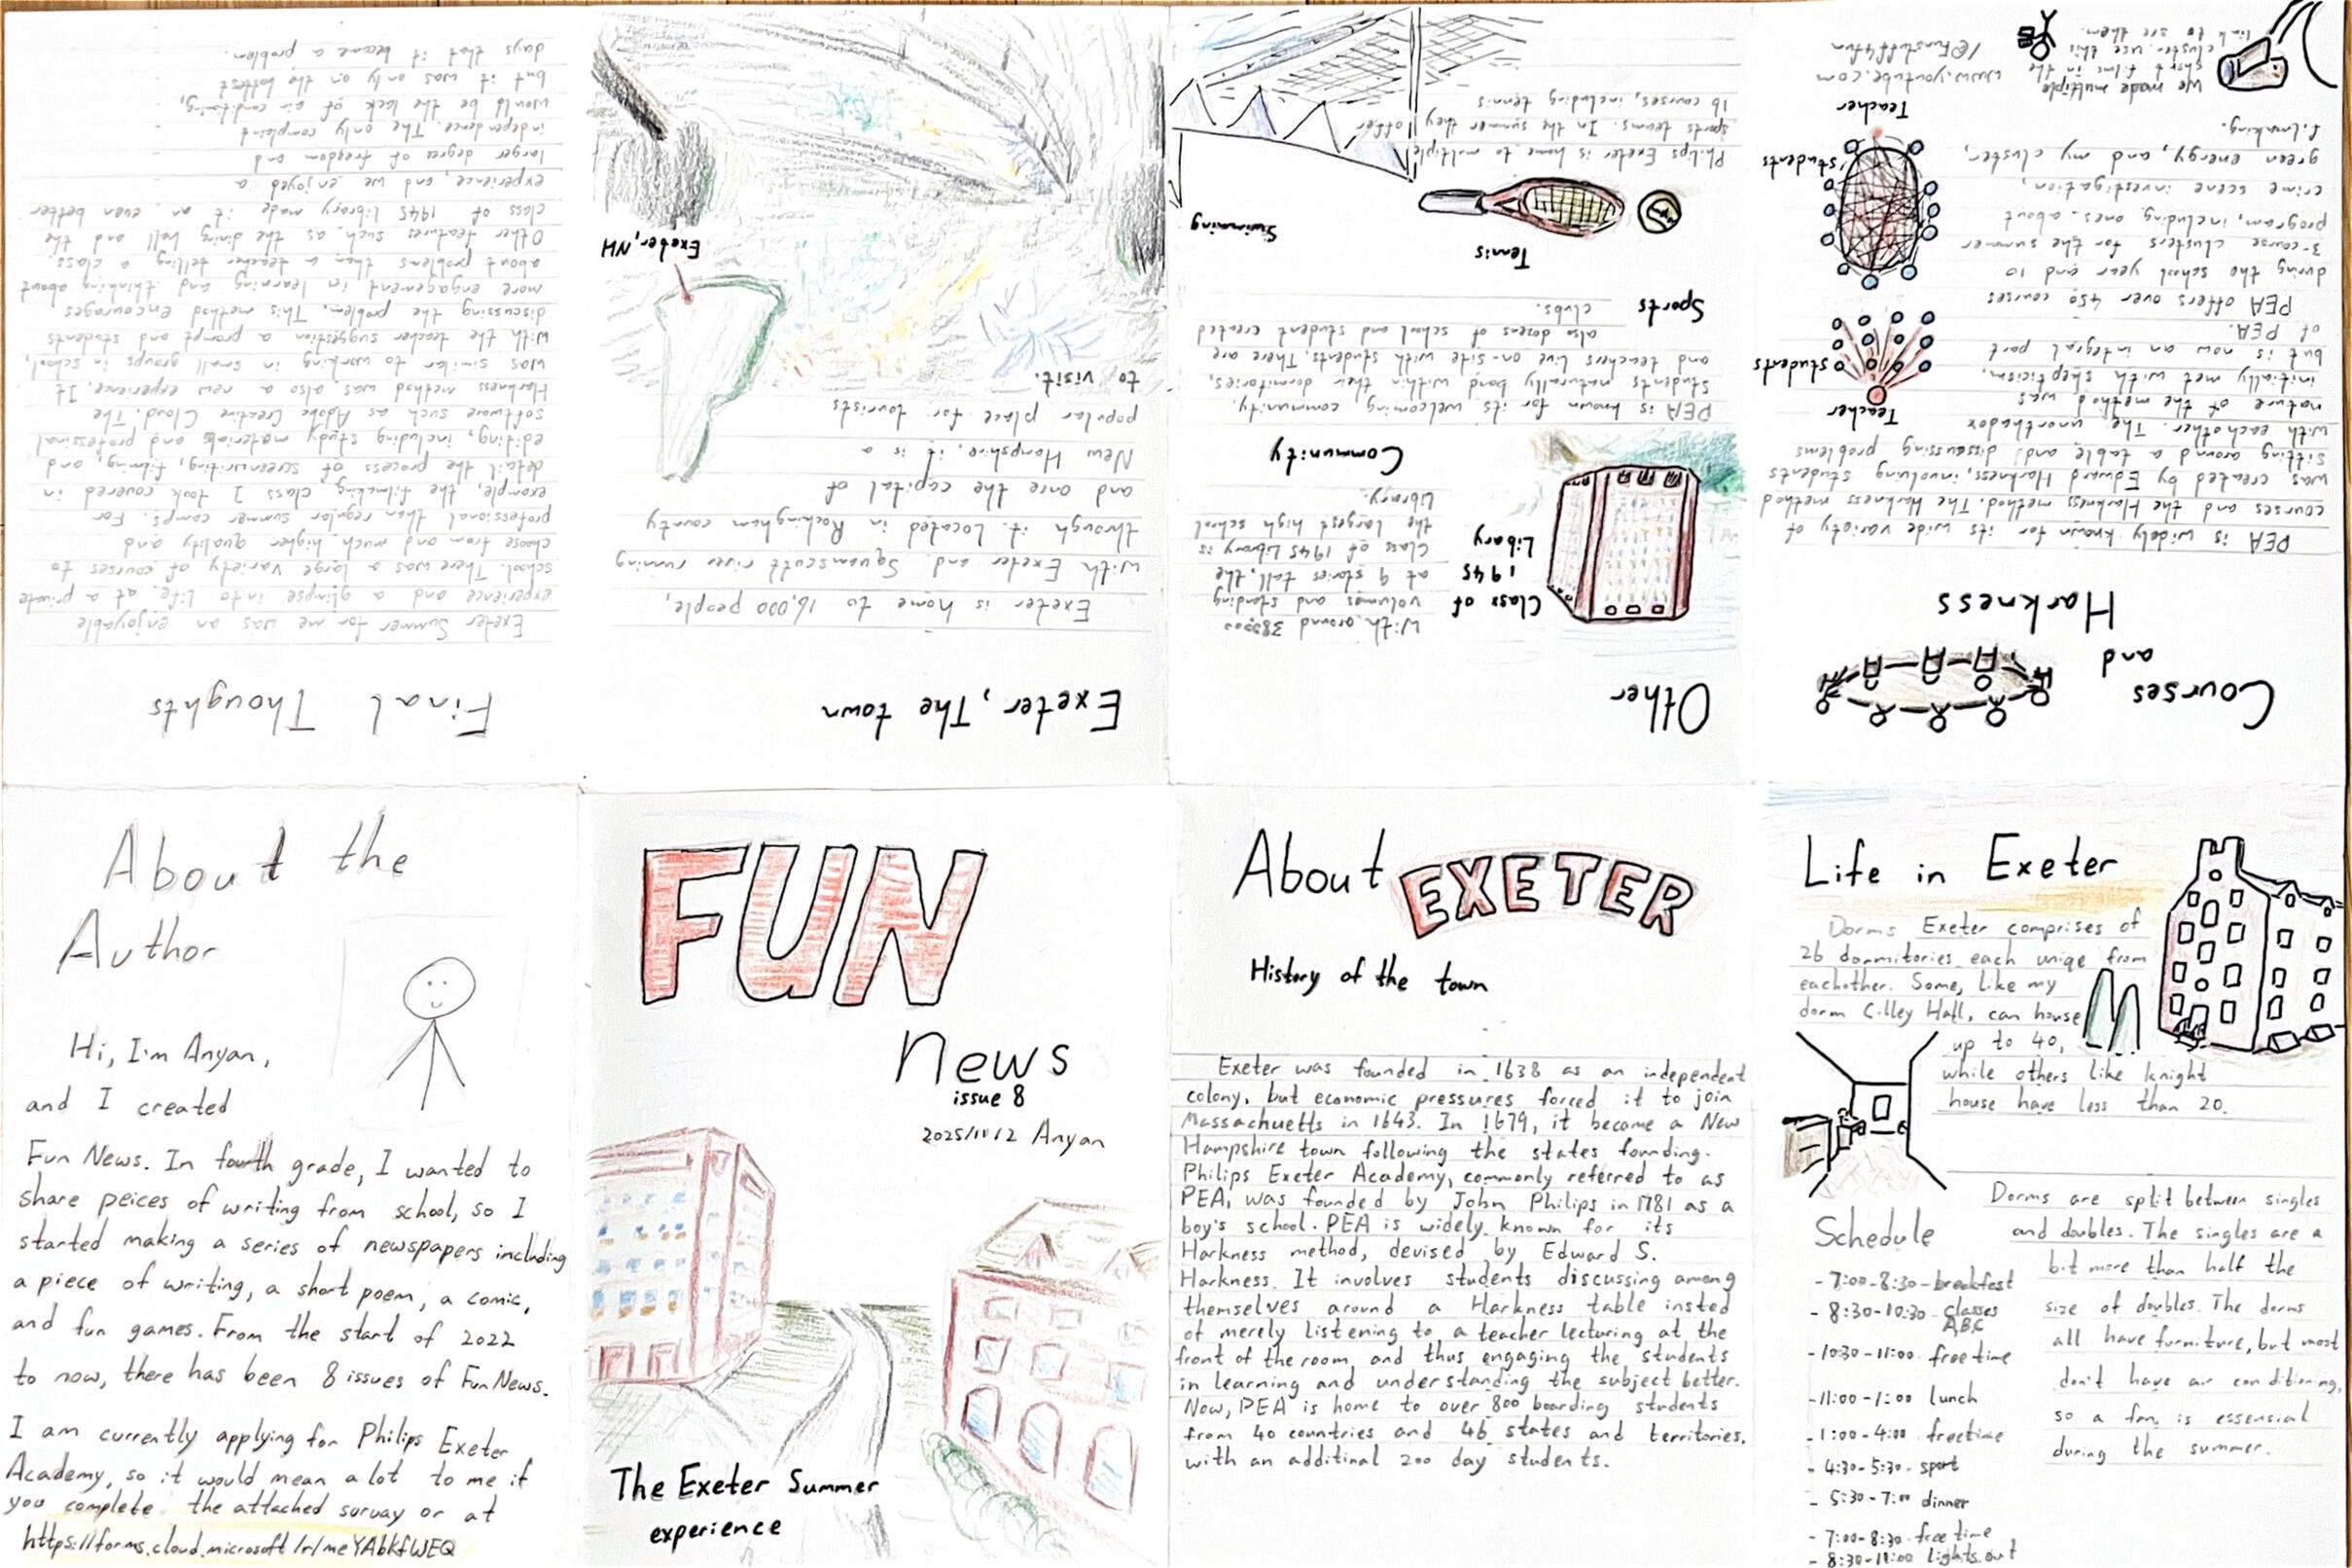 FUN
News
issue 8
2025/10/12 Anyan
The Exeter Summer
experience
About EXETER
History of the town
Exeter was founded in 1638 as an independent
colony, but economic pressures forced it to join
Massachuetts in 1643. In 1679, it became a New
Hampshire town following the states founding.
Philips Exeter Academy, commonly referred to as
PEA, was founded by John Philips in 1781 as a
boy's school. PEA is widely known for its
Harkness method, devised by Edward S.
Harkness. It involves students discussing among
themselves around a Harkness table insted
of merely listening to a teacher lecturing at the
front of the room, and thus engaging the students
in learning and understanding the subject better.
Now, PEA is home to over 800 boarding students
from 40 countries and 46 states and territories,
with an additinal 200 day students.
Life in Exeter
Dorms Exeter comprises of
26 dormitories each uniqe from
eachother. Some, like my
dorm Cilley Hall, can house
up to 40,
while others like knight
house have less than 20.
Dorms are split between singles
and doubles. The singles are a
bit more than half the
size of doubles. The dorms
all have furniture, but most
don't have air conditioning,
so a fan is essensial
during the summer.
Schedule
- 7:00-8:30 - breakfest
- 8:30-10:30 - classes
ABC
- 10:30-11:00 free time
- 11:00-1:00 lunch
- 1:00-4:00 freetime
- 4:30-5:30 - sport
- 5:30-7:00 dinner
- 7:00-8:30 - free time
- 8:30-11:00 lights out
Courses
and
Harkness
PEA is widely known for its wide varioty of
courses and the Harkness method. The Harkness method
was created by Edward Harkness, involving students
sitting around a table and discussing problems
with eachother. The unorthodox
nature of the method was
initially met with skepticism,
but is now an integral part
of PEA.
Teacher
students
PEA offers over 450 courses
during the school year and 10
3-course clusters for the summer
program, including ones about
crime scene investigation,
green energy, and my cluster,
filmaking.
students
Teacher
We made multiple
short films in the
cluster. Use this
link to see them.
www.youtube.com
/@Funstuff4fun
Other
Class of
1945
Libary
With around 380000
volumes and standing
at 9 stories tall, the
Class of 1945 Library is
the largest high school
Library.
Community
PEA is known for its welcoming community,
students naturally bond within their dormitories,
and teachers live on-site with students. There are
also dozens of school and student created
clubs.
Sports
Tennis
Swimming
Philips Exeter is home to multiple
sports teams. In the summer they offer
16 courses, including tennis
Exeter, The town
Exeter is home to 16,000 people,
with Exeter and Squamscutt river running
through it. Located in Rockingham county
and once the capital of
New Hampshire, it is a
popular place for tourists
to visit.
Exeter, NH
Final Thoughts
Exeter Summer for me was an enjoyable
experience and a glimpse into life at a private
school. There was a large variety of courses to
choose from and much higher quality and
professional than regular summer camps. For
example, the filmaking class I took covered in
detail the process of screenwriting, filming, and
editing, including study materials and professinal
software such as Adobe Creative Cloud. The
Harkness method was also a new experience. It
was similar to working in small groups in school,
with the teacher suggestion a prompt and students
discussing the problem. This method encourages
more engagement in learning and thinking about
about problems then a teacher telling a class.
Other features such as the dining hall and the
class of 1945 library made it an even better
experience, and we enjoyed a
larger degree of freedom and
independence. The only complaint
would be the lack of air conditioning,
but it was only on the hottest
days that it became a problem.
About the
Author
Hi, I'm Anyan,
and I created
Fun News. In fourth grade, I wanted to
share peices of writing from school, so I
started making a series of newspapers including
a piece of writing, a short poem, a comic,
and fun games. From the start of 2022
to now, there has been 8 issues of Fun News.
I am currently applying for Philips Exeter
Academy, so it would mean a lot to me if
you complete the attached survay or at
https://forms.cloud.microsoft/r/meYAbkfWEQ